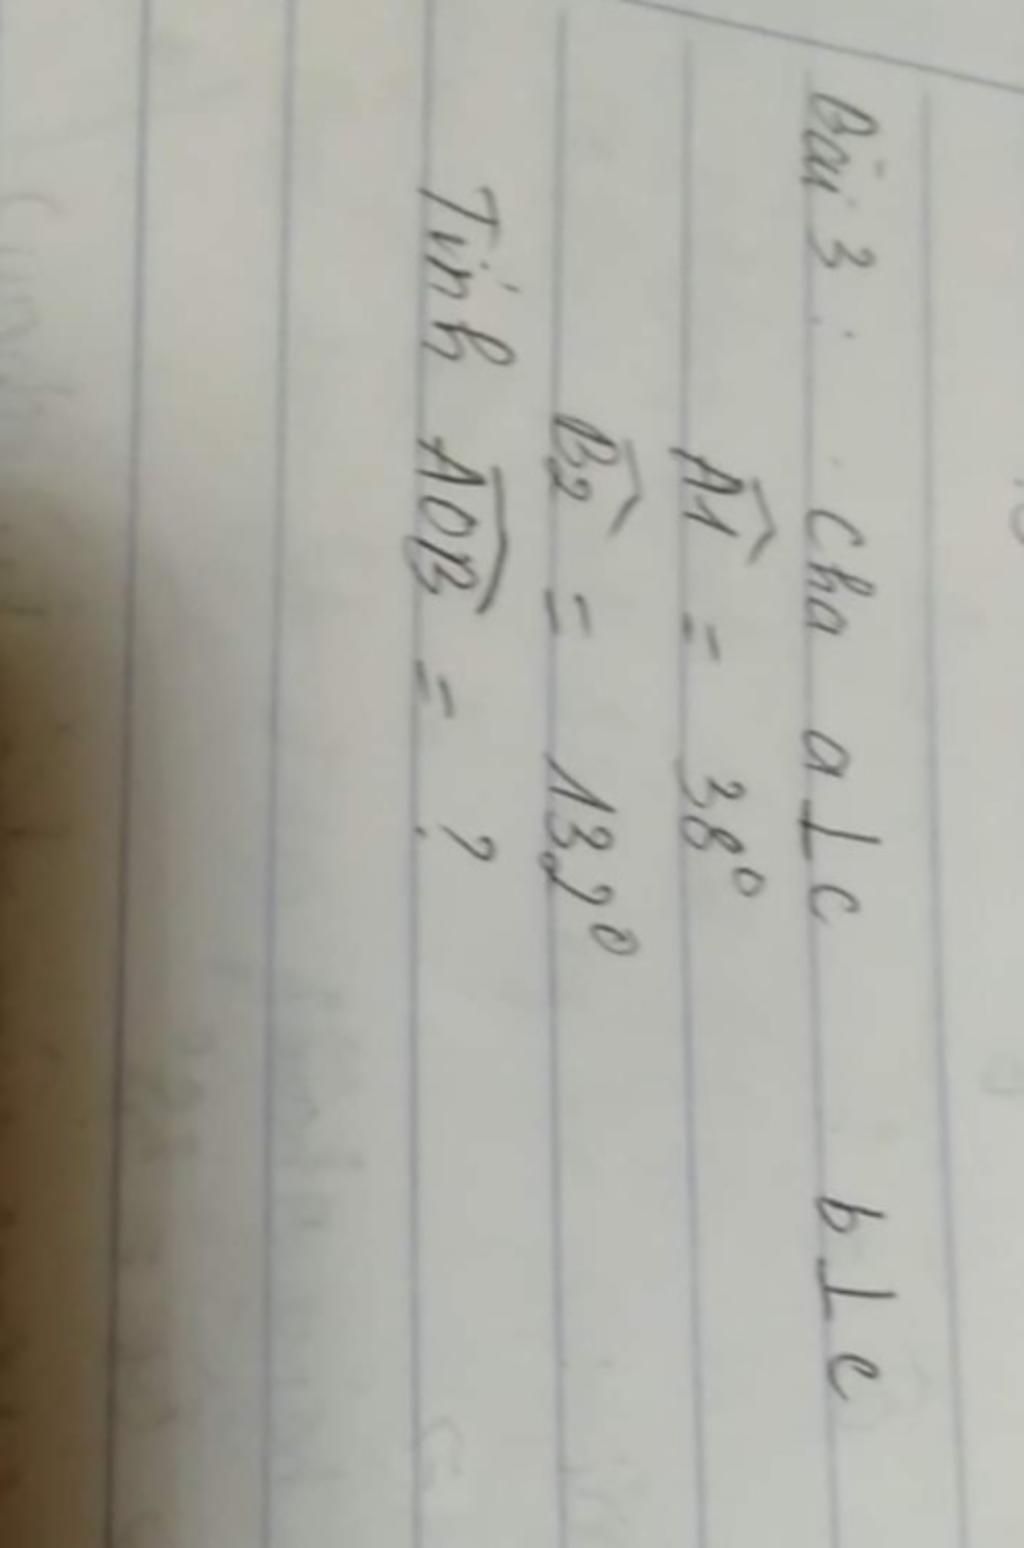 Bài 3: Cho a ⊥ c b ⊥ c
Â1 = 38°
B̂2 = 132°
Tính AOB = ?